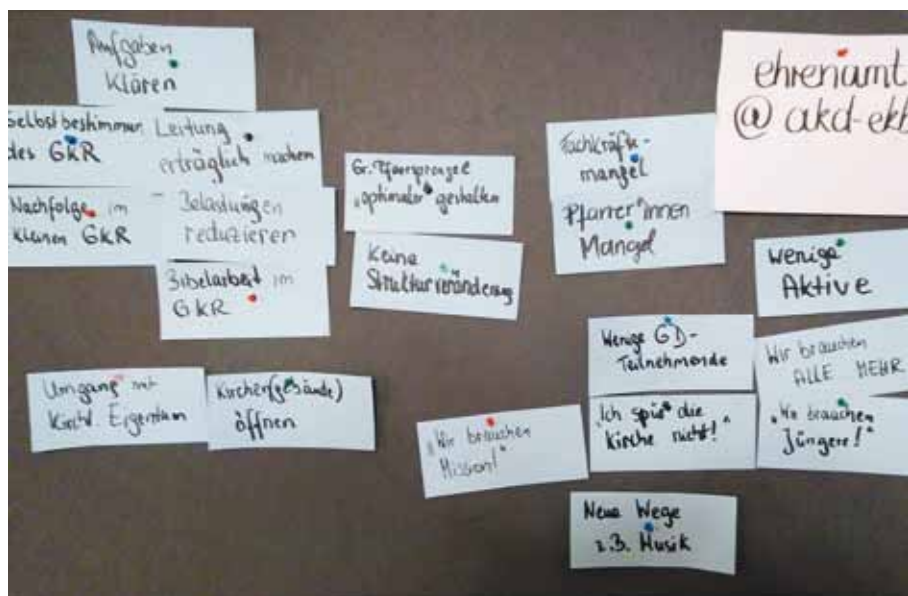 Aufgaben
klären
Selbstbestimmen
des GKR
Leitung
erträglich machen
Nachfolge im
kleinen GKR
Belastungen
reduzieren
Bibelarbeit im
GKR
Gr. Pfarrsprengel
„optimaler" gestalten
Keine
Strukturveränderung
Fachkräfte-
mangel
Pfarrer*innen
Mangel
ehrenamt
@ akd-ekb
Wenige
Aktive
Wenige GD-
Teilnehmende
Wir brauchen
ALLE MEHR
Umgang mit
kirchl. Eigentum
Kirchen(gebäude)
öffnen
„Wir brauchen
Mission!"
"Ich spür die
Kirche nicht!"
„Wir brauchen
Jüngere!"
Neue Wege
z.B. Musik